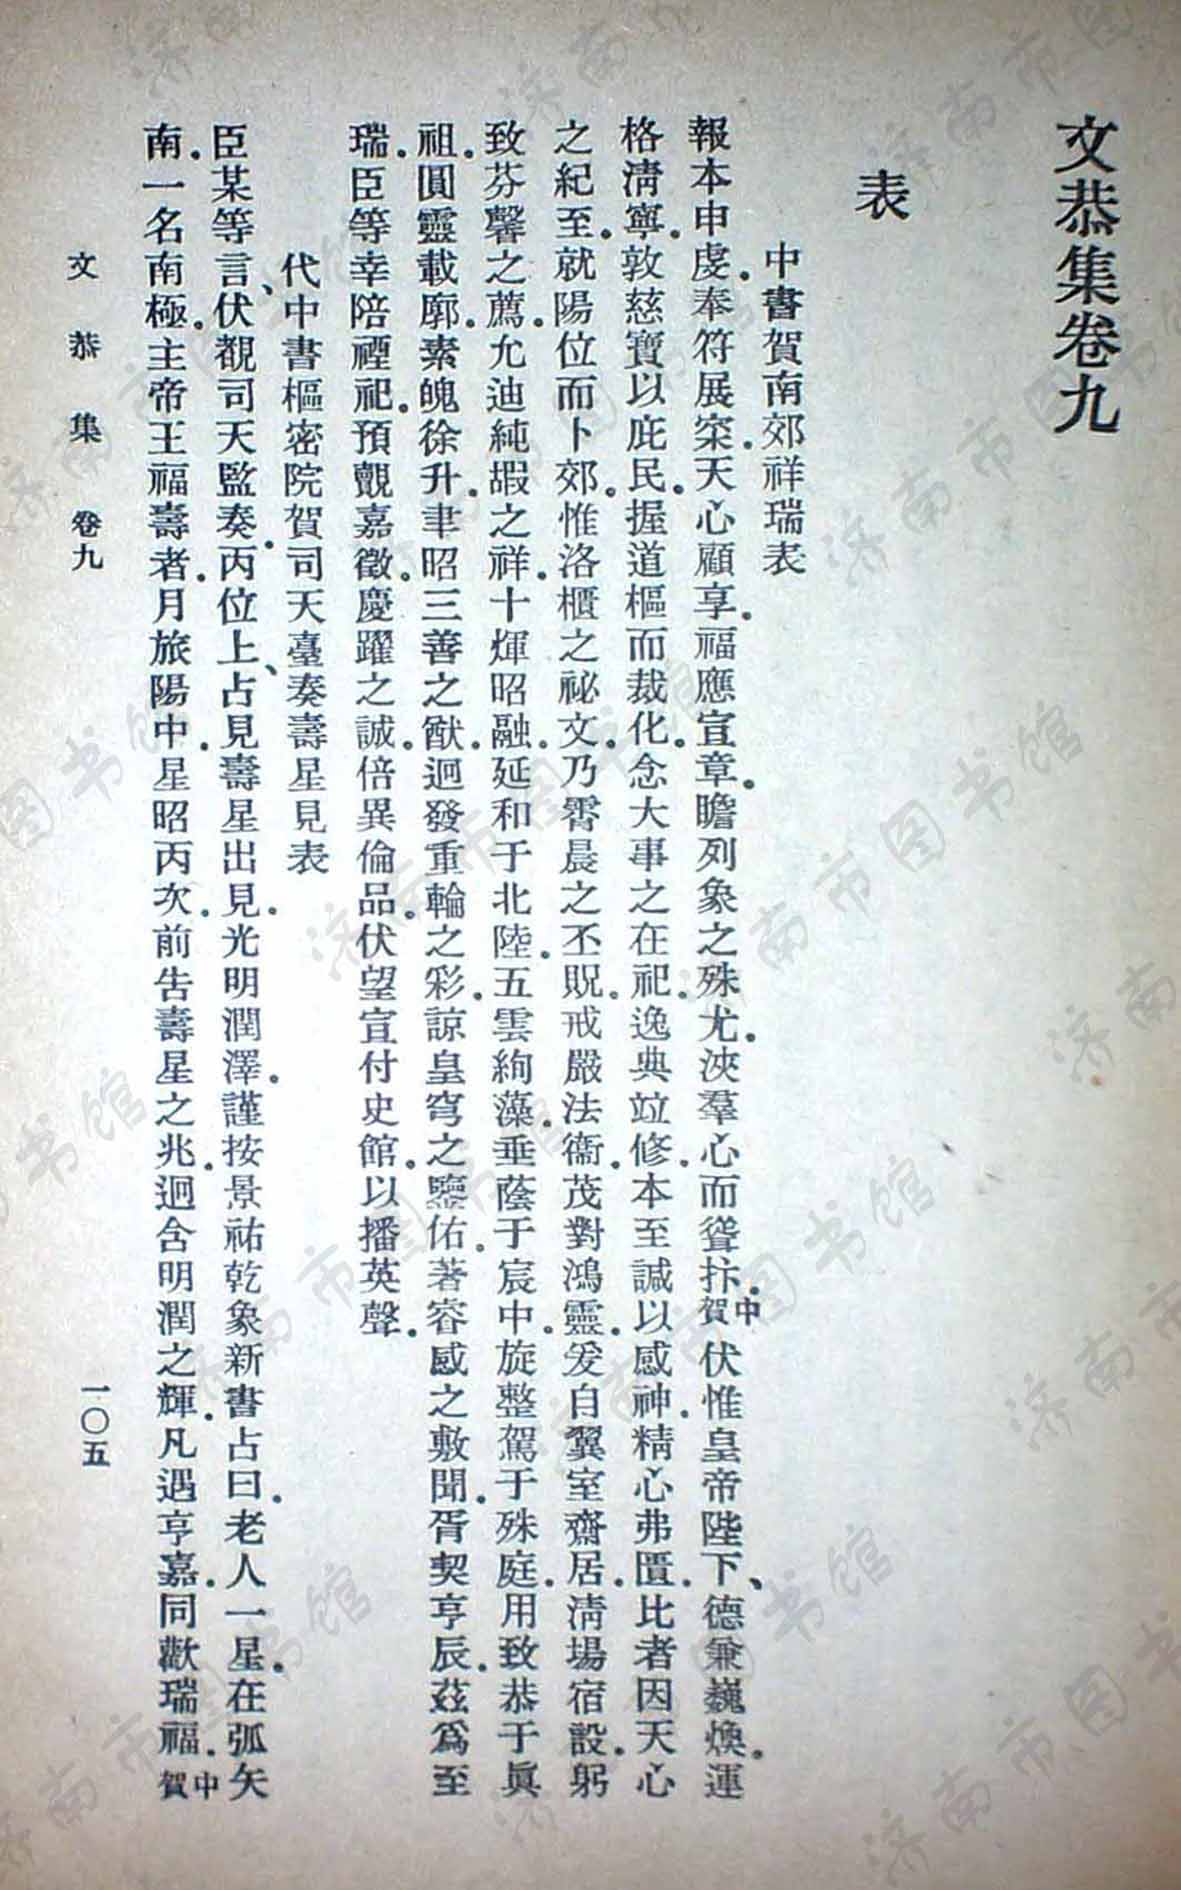 文恭集卷九
表
中書賀南郊祥瑞表
報本申虔。奉符展寀。天心顧享。福應宣章。瞻列象之殊尤。浹羣心而聳抃。中賀伏惟皇帝陛下、德兼巍煥。運
格淸寧。敦慈寶以庇民。握道樞而裁化。念大事之在祀。逸典竝修。本至諴以感神。精心弗匱。比者因天心
之紀至。就陽位而卜郊。惟洛櫃之祕文。乃霄晨之丕貺。戒嚴法衞。茂對鴻靈。爰自翼室齋居。淸場宿設。躬
致芬馨之薦。允迪純嘏之祥。十煇昭融。延和于北陸。五雲絢藻。垂蔭于宸中。旋整駕于殊庭。用致恭于眞
祖。圓靈載廓。素魄徐升。聿昭三善之猷。迥發重輪之彩。諒皇穹之鑒佑。著睿感之敷聞。胥契亨辰。茲爲至
瑞。臣等幸陪禋祀。預覿嘉徵。慶躍之誠。倍異倫品。伏望宣付史館。以播英聲。
代中書樞密院賀司天臺奏壽星見表
臣某等言、伏覩司天監奏。丙位上、占見壽星出見。光明潤澤。謹按景祐乾象新書占曰。老人一星。在弧矢
南。一名南極。主帝王福壽者。月旅陽中。星昭丙次。前告壽星之兆。迥含明潤之輝。凡遇亨嘉。同歡瑞福。中賀
文恭集 卷九 一〇五
济南市图书馆